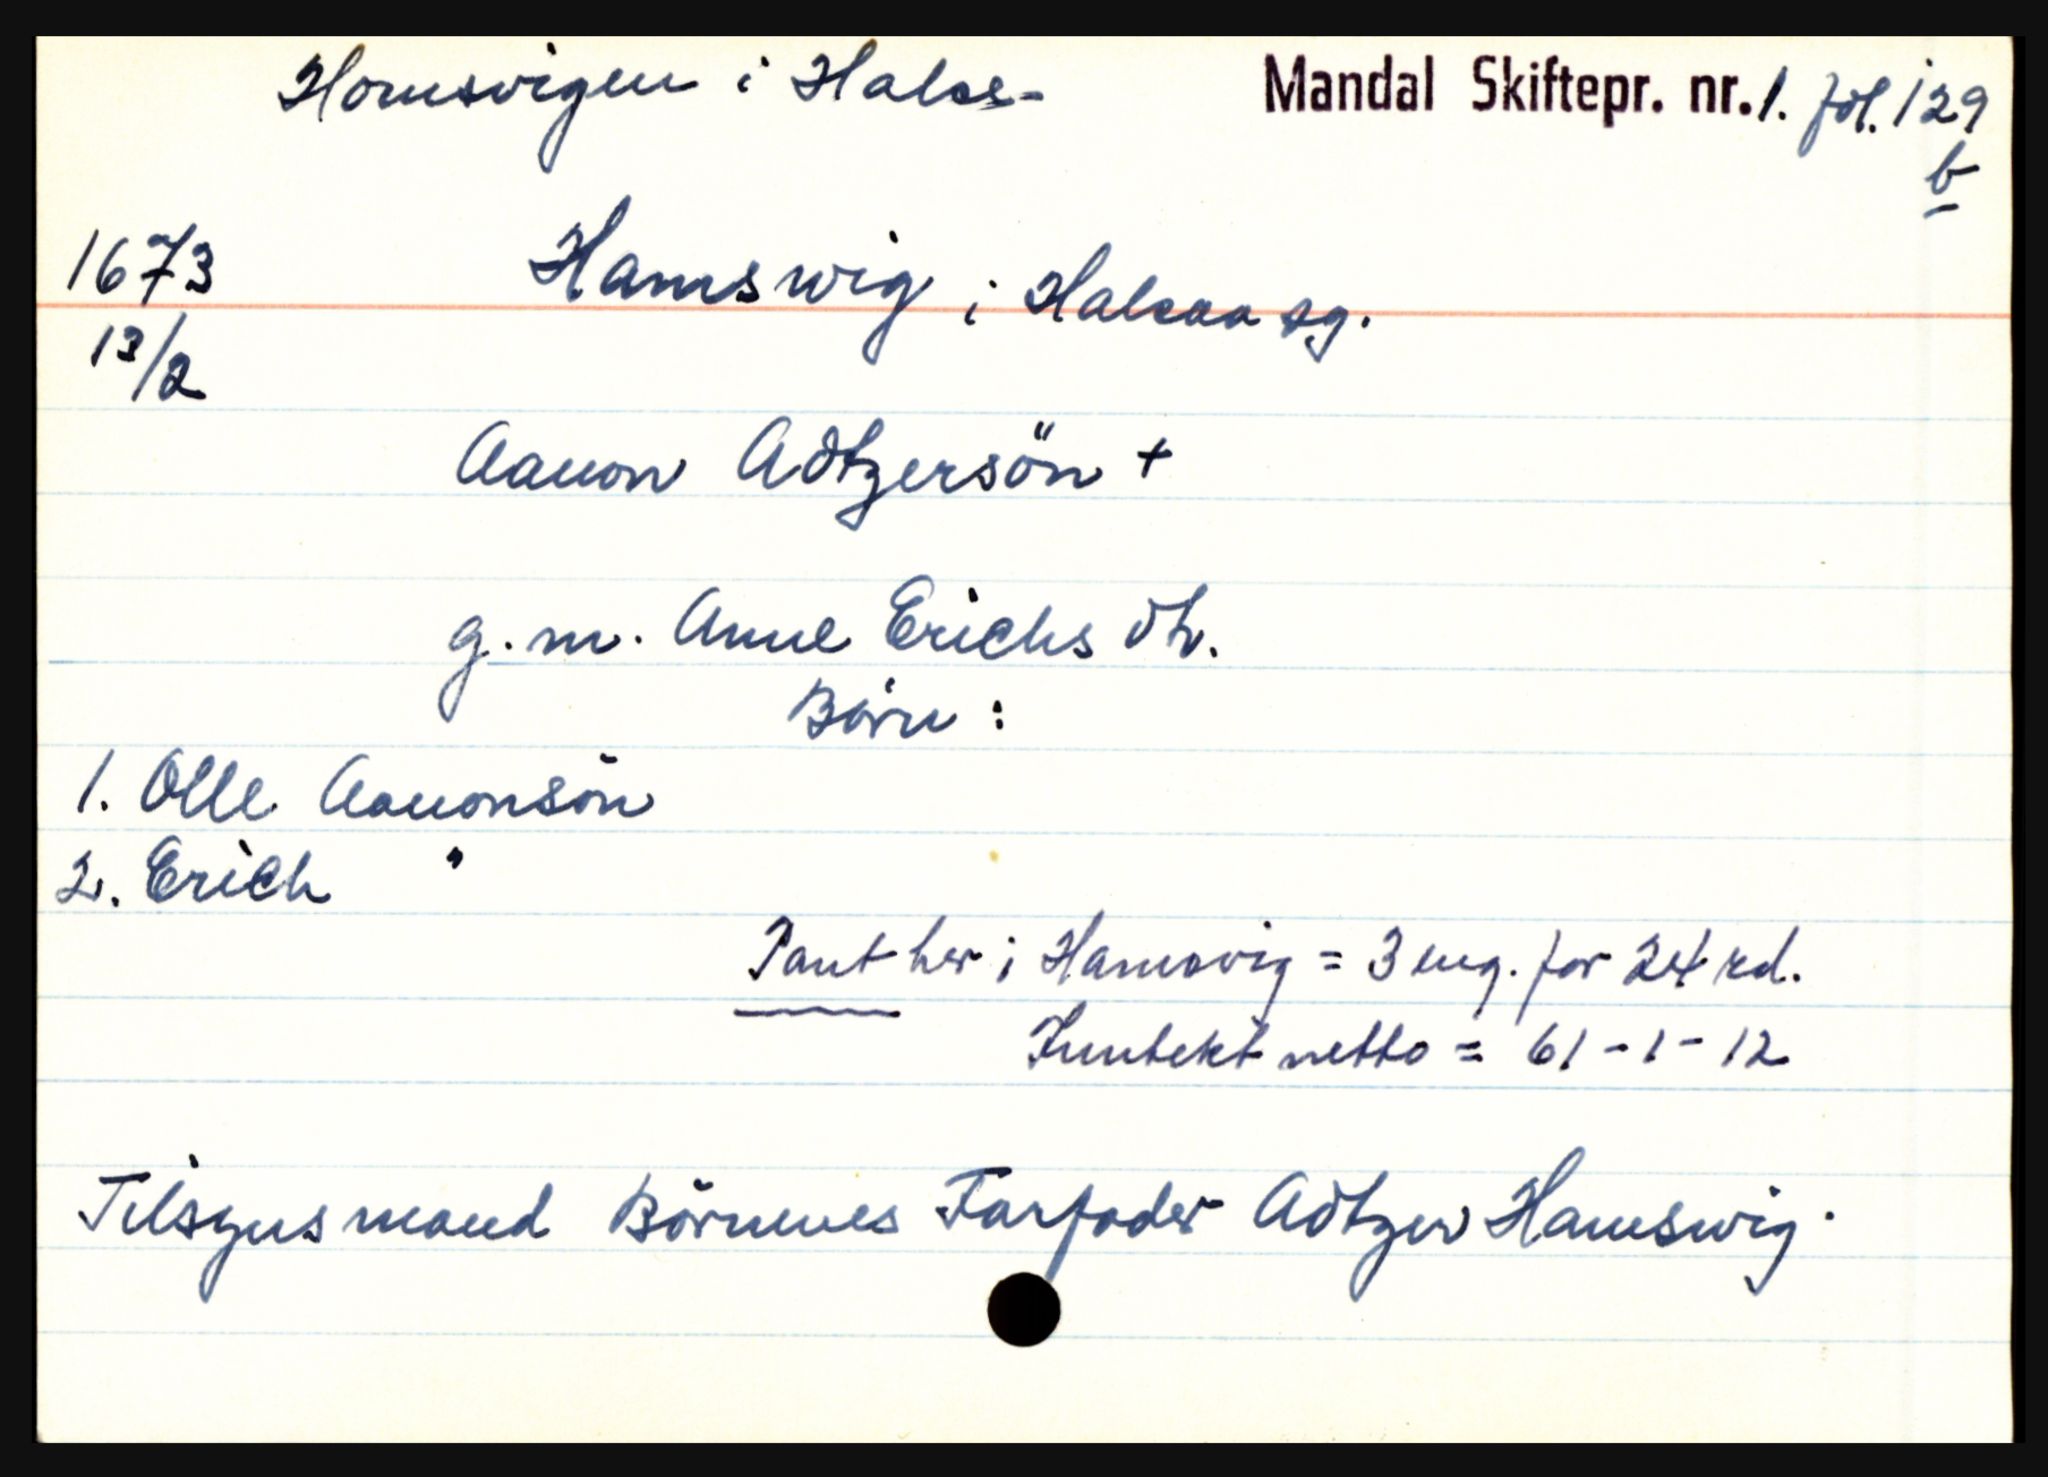 Homsvigen i Halse- Mandal Skiftepr. nr. 1. fol. 129
b
1673 Hamswig i Halsaa sg.
13/2
Aauon Adtzersön +
g. m. Anne Erichs dtr.
Börn :
1. Olle Aauonsön
2. Erich "
Pant her i Hamsvig = 3 eng. for 24 rd.
Inntekt netto = 61 - 1 - 12
Tilsynsmand Börnenes Farfader Adtzer Hamswig.